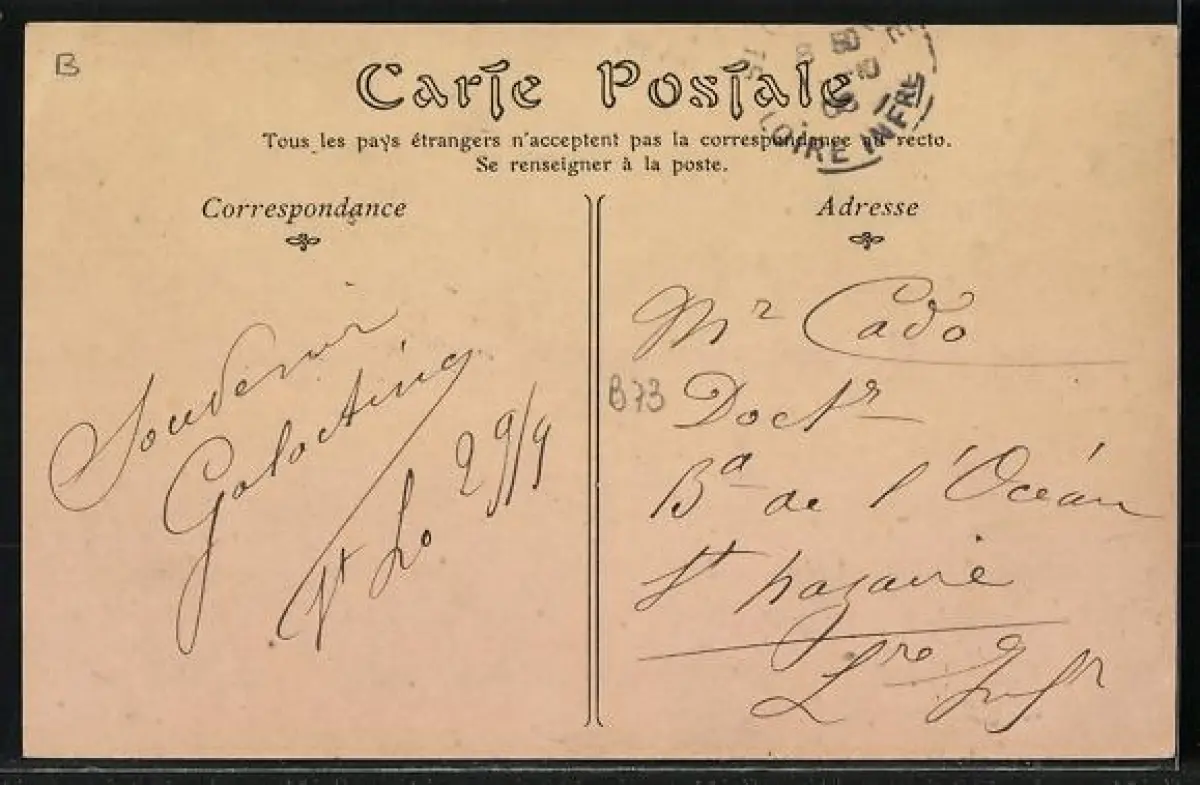 B
Carte Postale
Tous les pays étrangers n'acceptent pas la correspondance au recto.
Se renseigner à la poste.
LOIRE INFRE
Correspondance
Adresse
Souvenir
St Lo 29/9
Mr Cado
B73
Doctr
Bd de l'Océan
St Nazaire
Lre Infr